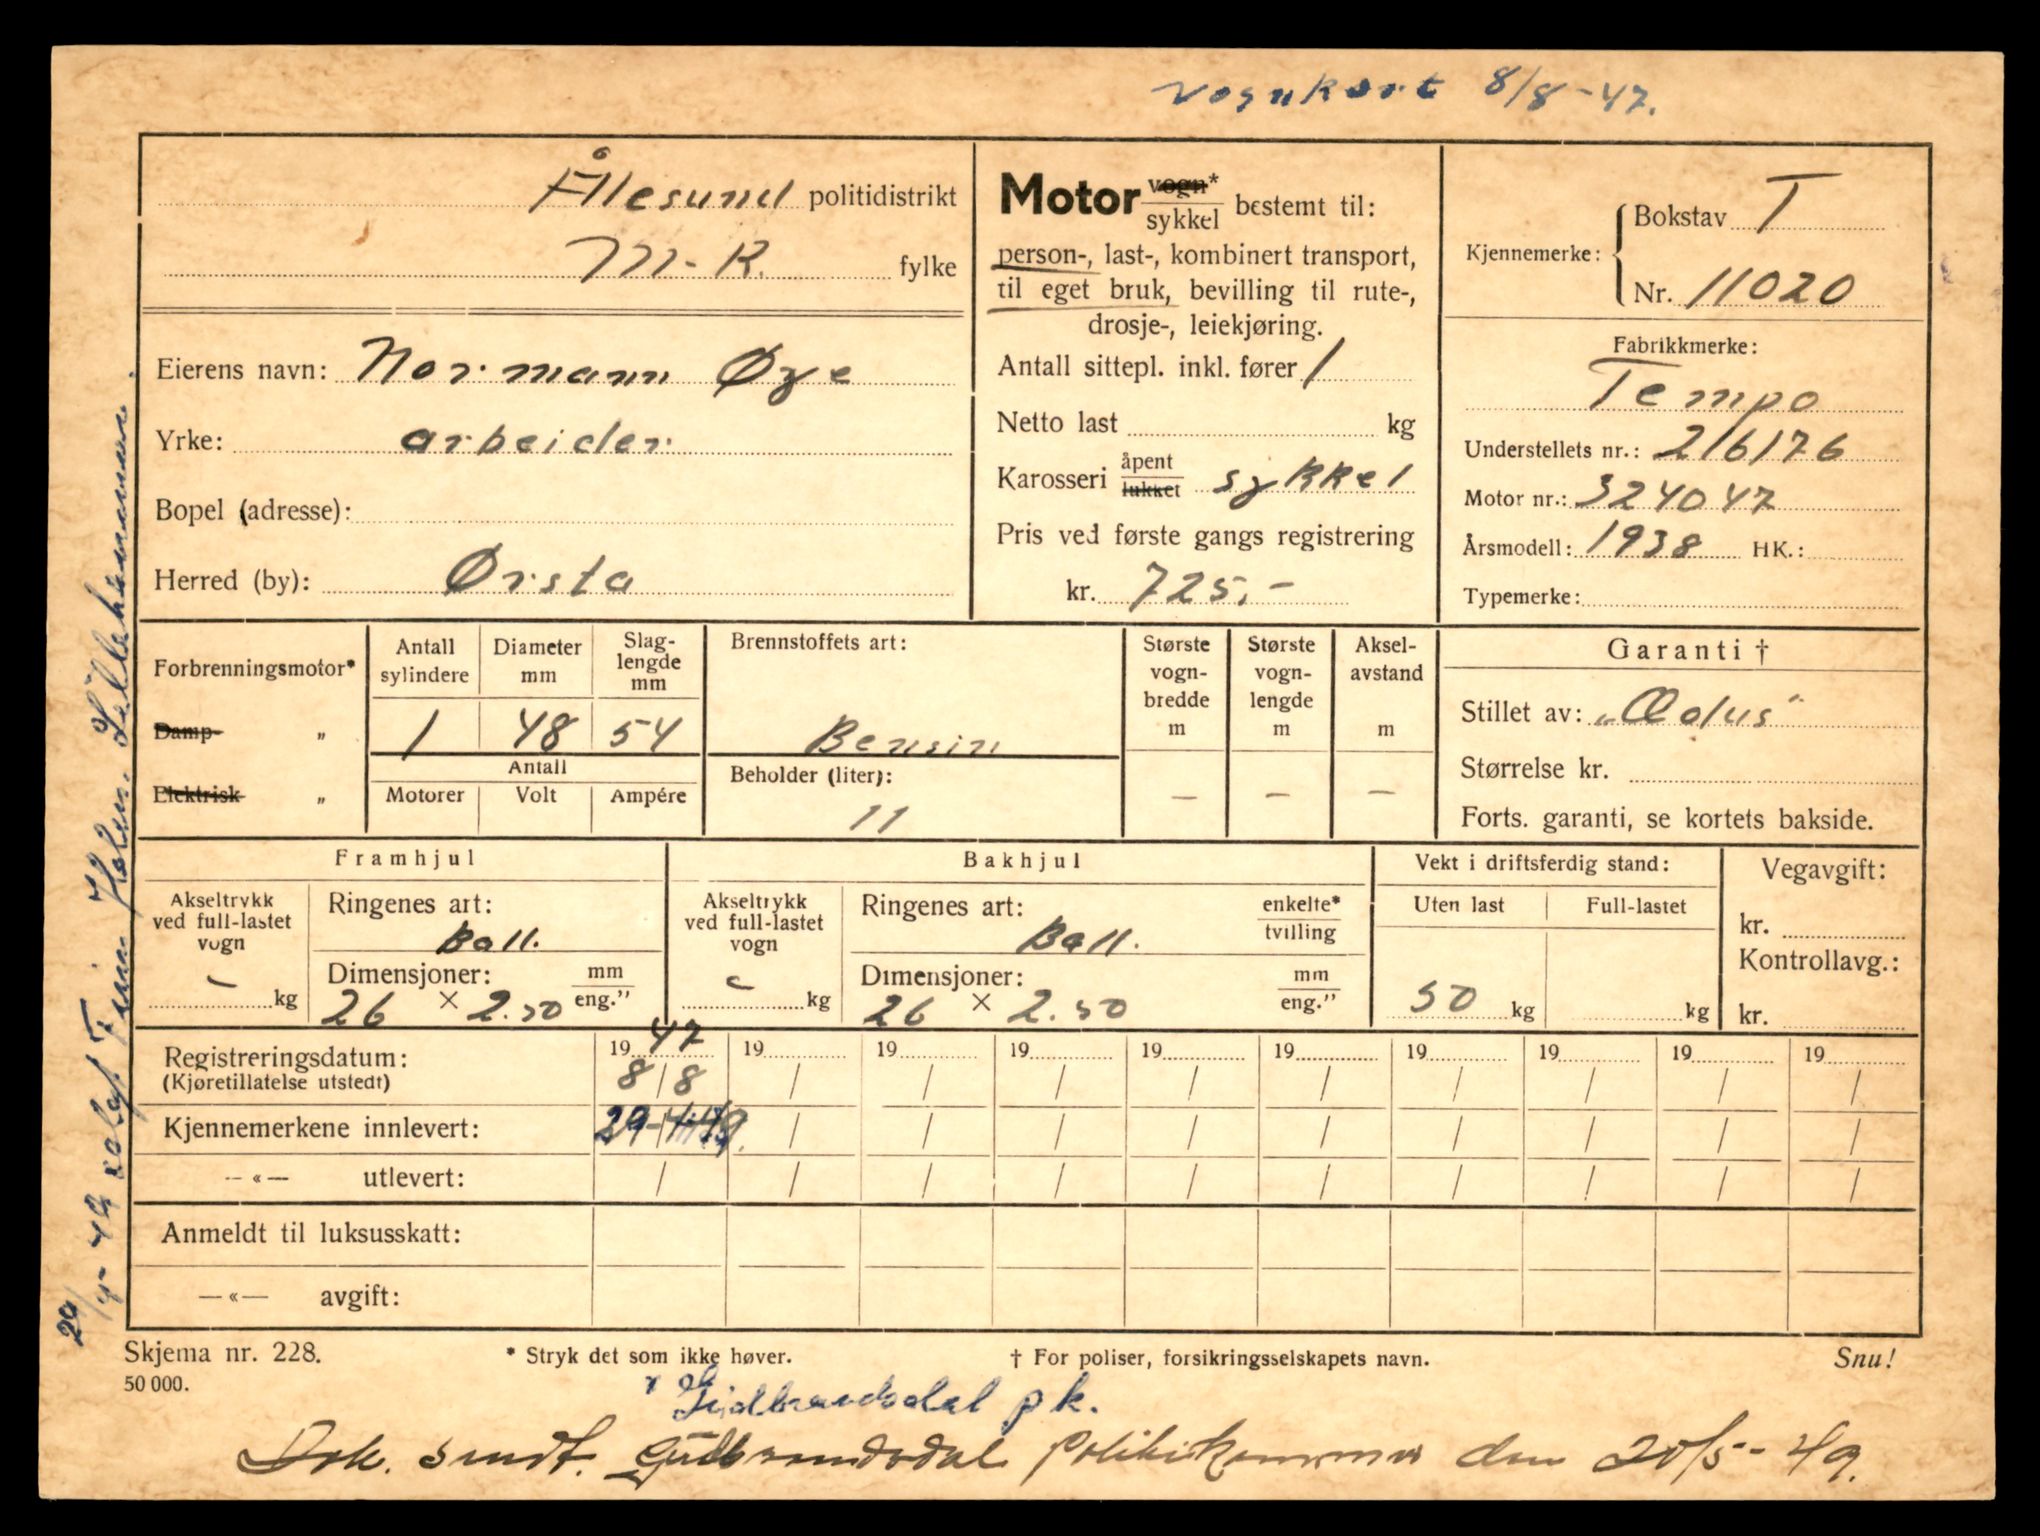 Vognkort 8/8-47.
Ålesund politidistrikt
M-R. fylke
Eierens navn: Normann Øye
Yrke: arbeider
Bopel (adresse):
Herred (by): Ørsta
Motor vogn* / sykkel bestemt til:
person-, last-, kombinert transport,
til eget bruk, bevilling til rute-,
drosje-, leiekjøring.
Antall sittepl. inkl. fører 1
Netto last kg
Karosseri åpent / lukket sykkel
Pris ved første gangs registrering
kr. 725,-
Kjennemerke: Bokstav T
Nr. 11020
Fabrikkmerke:
Tempo
Understellets nr.: 216176
Motor nr.: 324047
Årsmodell: 1938 HK.:
Typemerke:
Forbrenningsmotor*
Damp- „
Elektrisk „
Antall sylindere
Diameter mm
Slag-lengde mm
1 48 54
Antall
Motorer Volt Ampére
Brennstoffets art:
Bensin
Beholder (liter):
11
Største vogn-bredde m
Største vogn-lengde m
Aksel-avstand m
— — —
Garanti †
Stillet av: „Æolus"
Størrelse kr.
Forts. garanti, se kortets bakside.
Framhjul
Akseltrykk ved full-lastet vogn
- kg
Ringenes art:
Ball.
Dimensjoner: mm / eng."
26 × 2.50
Bakhjul
Akseltrykk ved full-lastet vogn
- kg
Ringenes art: enkelte* / tvilling
Ball.
Dimensjoner: mm / eng."
26 × 2.50
Vekt i driftsferdig stand:
Uten last Full-lastet
50 kg kg
Vegavgift:
kr.
Kontrollavg.:
kr.
Registreringsdatum: 1947 19 19 19 19 19 19 19 19 19
(Kjøretillatelse utstedt) 8/8 / / / / / / / / /
Kjennemerkene innlevert: 29-4-49. / / / / / / / / /
—«— utlevert: / / / / / / / / / /
Anmeldt til luksusskatt:
—«— avgift:
Skjema nr. 228.
50 000.
* Stryk det som ikke høver.
† For poliser, forsikringsselskapets navn.
Snu!
Gudbrandsdal pk.
Dok. sendt. Gudbrandsdal politikammer den 20/5-49.
29/4-49 solgt Finn Holen, Lillehammer.